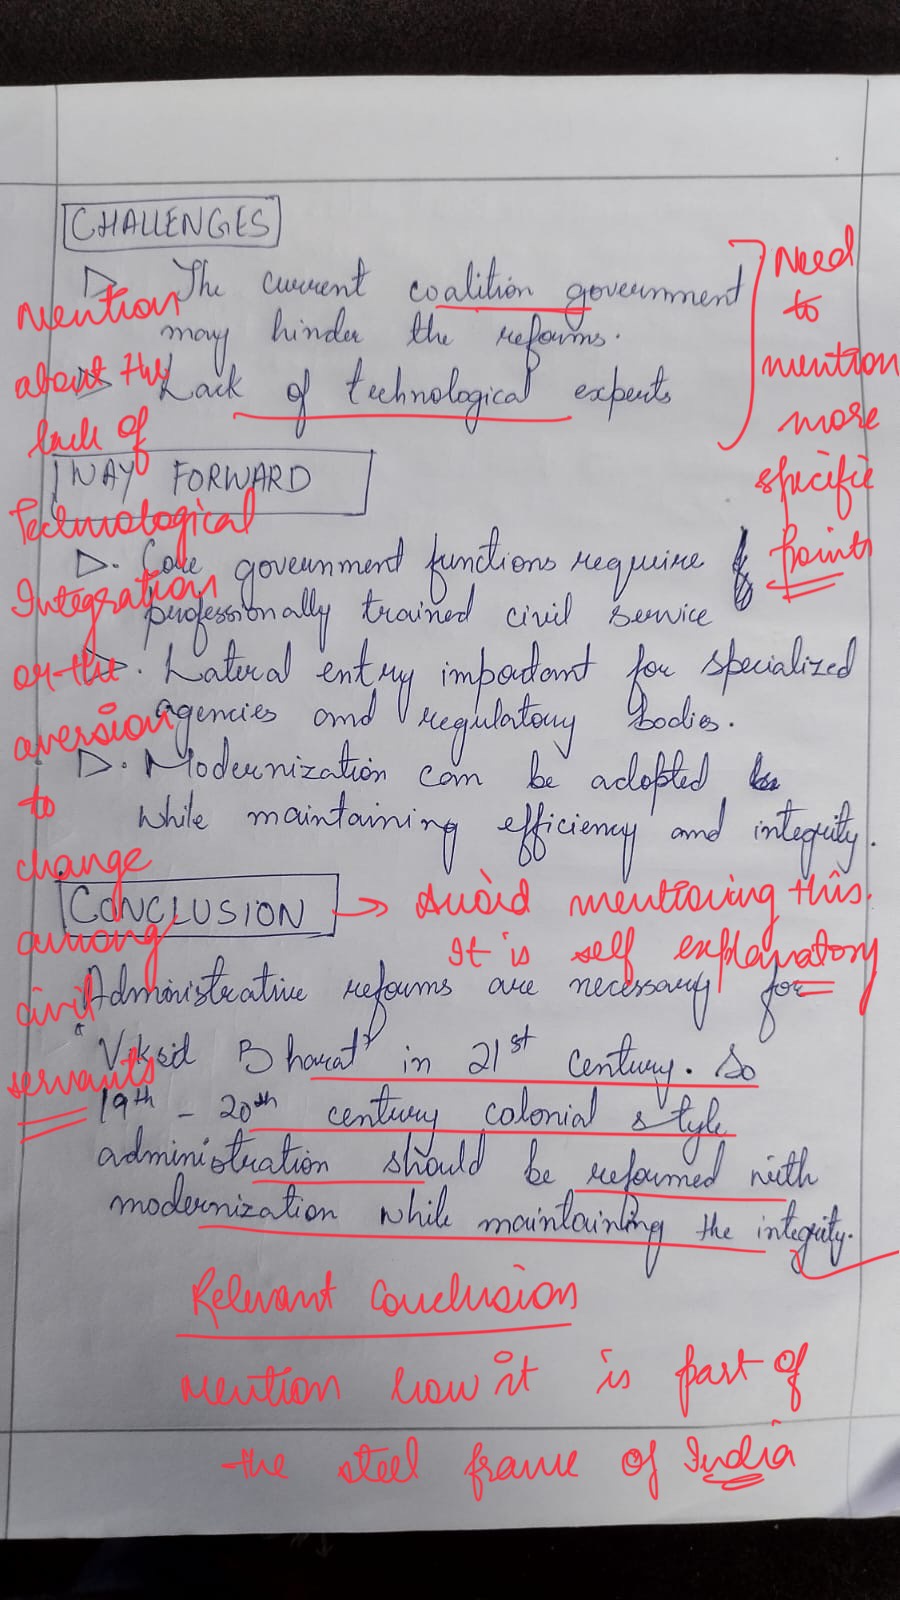 CHALLENGES
The current coalition government
may hinder the reforms.
Lack of technological experts
Need
to
mention
more
specific
points
Mention
about the
lack of
Technological
Integration
or the
aversion
to
change
among
civil
servants
WAY FORWARD
Core government functions require
professionally trained civil service
Lateral entry important for specialized
agencies and regulatory bodies.
Modernization can be adopted
while maintaining efficiency and integrity.
CONCLUSION → Avoid mentioning this.
It is self explanatory
Administrative reforms are necessary for
"Viksid Bharat" in 21st century. So
19th - 20th century colonial style
administration should be reformed with
modernization while maintaining the integrity.
Relevant Conclusion
mention how it is part of
the steel frame of India